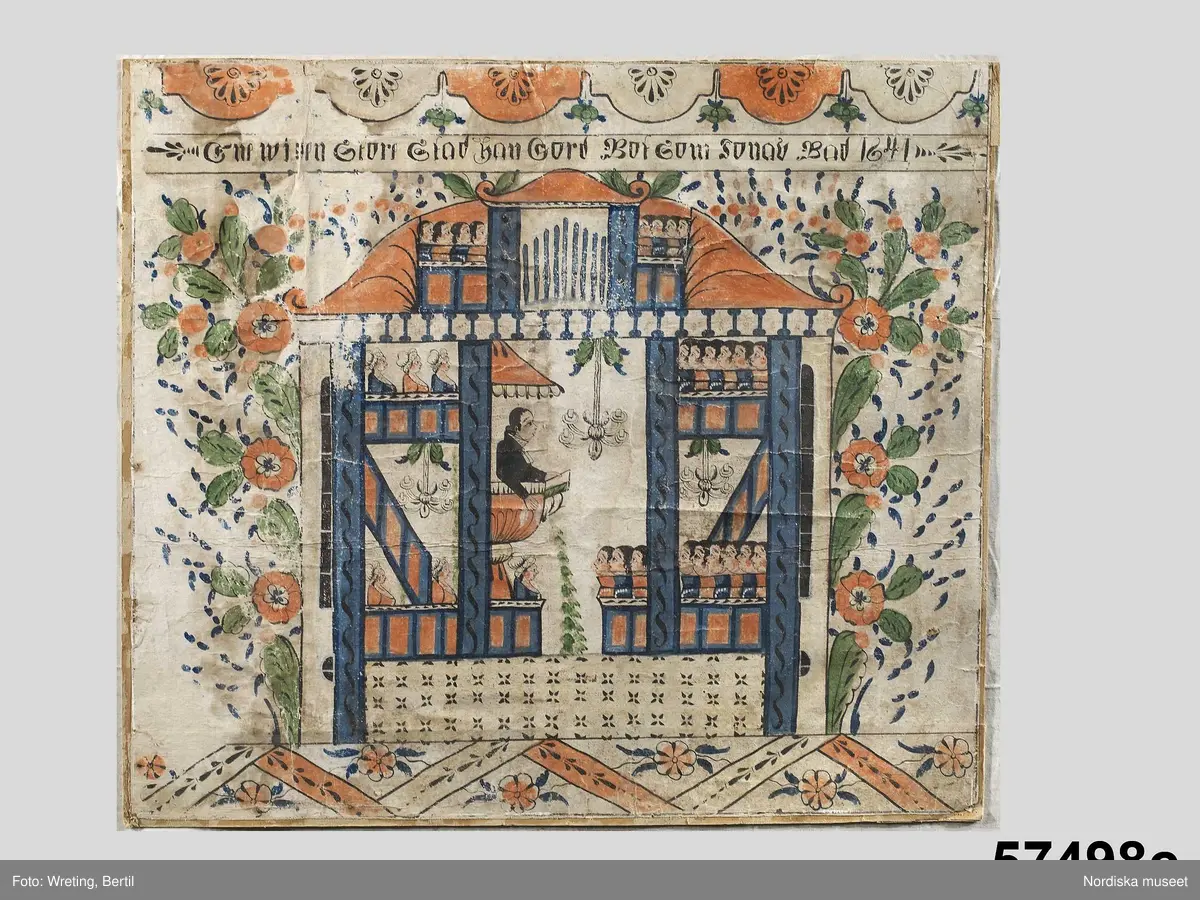 wisen Store Stad han Gord Bot Som Jonas Bad 1841
57498
Foto: Wreting, Bertil
Nordiska museet